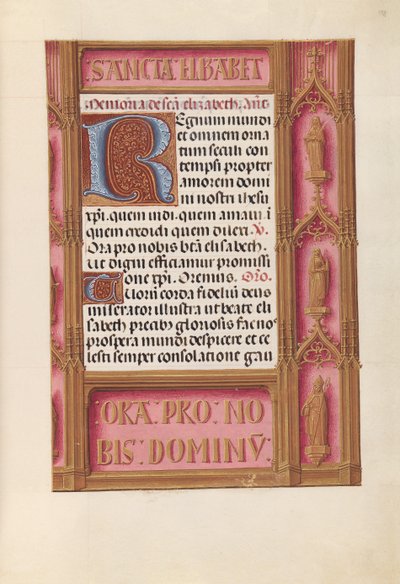 SANCTA ELISABET
Memoria de scã elizabeth; Añt
Regnum mundi
et omnem orna
tum seculi con
tempsi propter
amorem domi
ni nostri ihesu
xp̃i. quem uidi. quem amaui. i
quem credidi quem dilexi. V̷.
Ora pro nobis btã elisabeth.
Ut digni efficiamur promissi
one xp̃i. Oremus. Oro.
Tuorũ corda fidelium deus
miserator illustra ut beate eli
sabeth precibꝰ gloriosis fac nos
prospera mundi despicere et ce
lesti semper consolatione gau
ORA PRO NO
BIS DOMINV̄